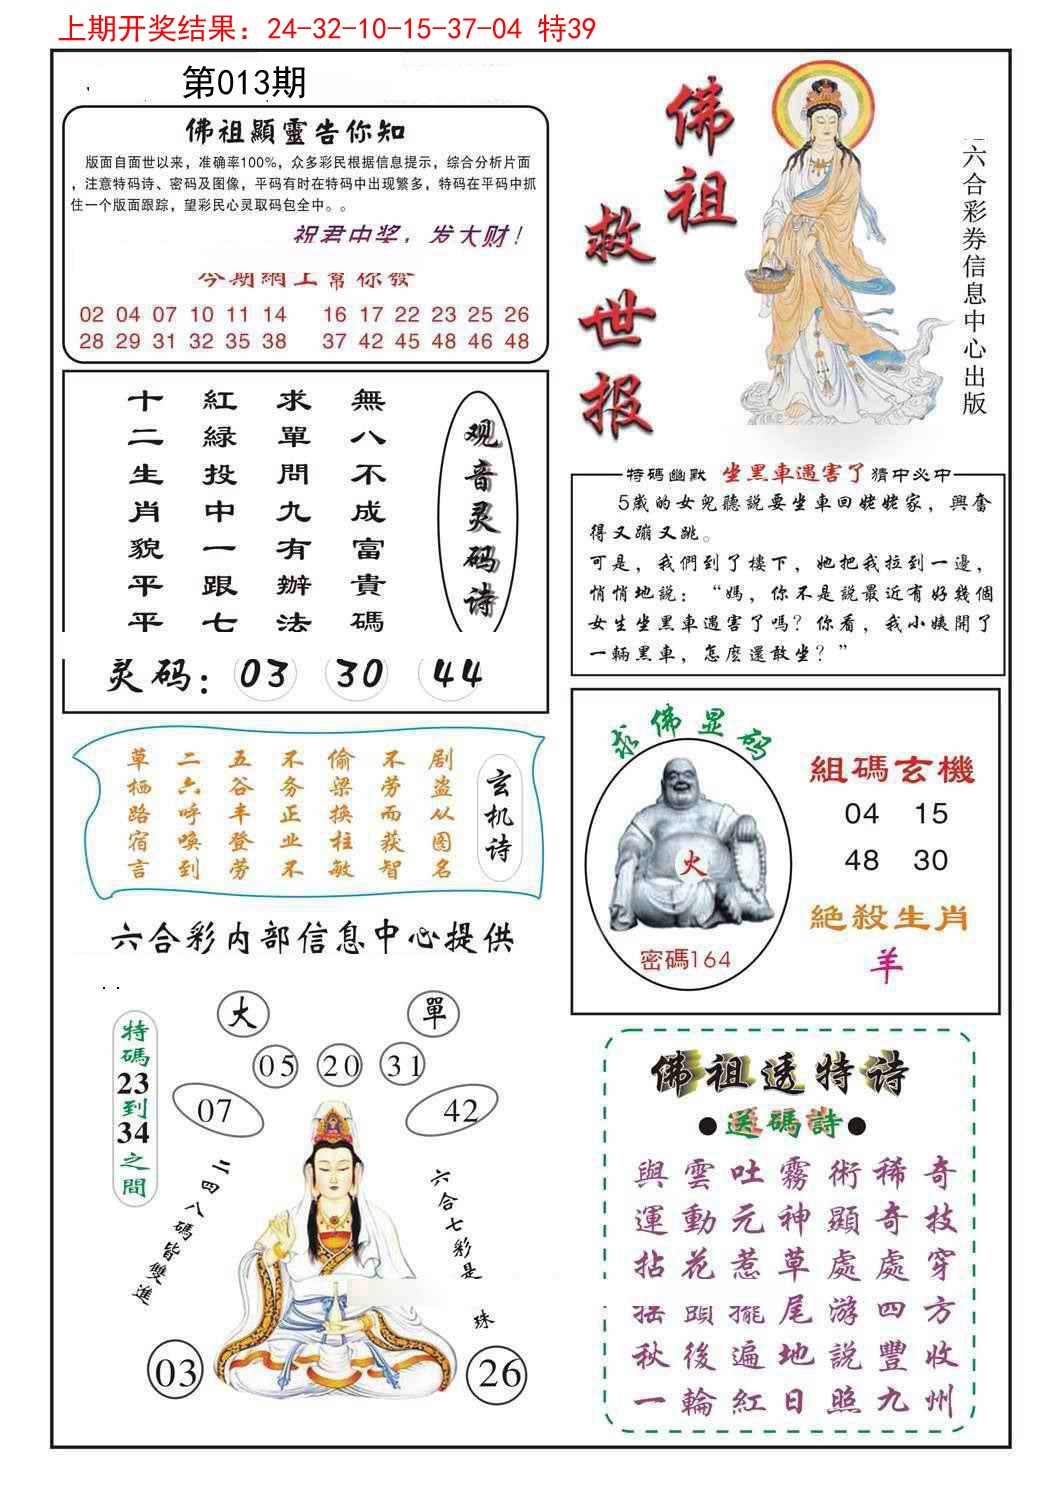 上期开奖结果：24-32-10-15-37-04 特39
第013期
佛祖顯靈告你知
版面自面世以来，准确率100%，众多彩民根据信息提示，综合分析片面
，注意特码诗、密码及图像，平码有时在特码中出现繁多，特码在平码中抓
住一个版面跟踪，望彩民心灵取码包全中。。
祝君中奖，发大财！
今期網上幫你發
02 04 07 10 11 14 16 17 22 23 25 26
28 29 31 32 35 38 37 42 45 48 46 48
佛祖
救世报
六合彩券信息中心出版
观音灵码诗
無八不成富貴碼
求單問九有辦法
紅緑投中一跟七
十二生肖貌平平
灵码：03 30 44
特碼幽默 坐黑車遇害了 猜中必中
5歲的女兒聽説要坐車回姥姥家，興奮
得又蹦又跳。
可是，我們到了樓下，她把我拉到一邊，
悄悄地説：“媽，你不是説最近有好幾個
女生坐黑車遇害了嗎？你看，我小姨開了
一輛黑車，怎麽還敢坐？”
玄机诗
剧盗从图名
不劳而获智
偷梁换柱敏
不务正业不
五谷丰登劳
二六呼唤到
草栖路宿言
求佛显码
火
密碼164
組碼玄機
04 15
48 30
絕殺生肖
羊
六合彩内部信息中心提供
大
單
05 20 31
07
42
特碼23到34之間
二四八碼皆雙進
六合七彩是
珠
03
26
佛祖透特诗
●送碼詩●
與雲吐霧術稀奇
運動元神顯奇技
拈花惹草處處穿
摇頭擺尾游四方
秋後遍地説豐收
一輪紅日照九州